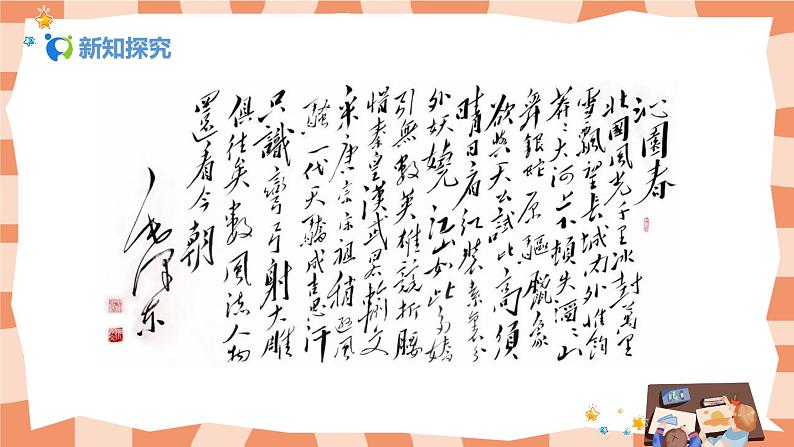 新知探究
沁園春
北國風光千里冰封萬里
雪飄望長城內外惟餘
莽〻大河上下頓失滔〻山
舞銀蛇原驅臘象
欲與天公試比高須
晴日看紅裝素裹分
外妖嬈江山如此多嬌
引無數英雄競折腰
惜秦皇漢武略輸文
采唐宗宋祖稍遜風
騷一代天驕成吉思汗
只識彎弓射大雕
俱往矣數風流人物
還看今朝
毛澤東